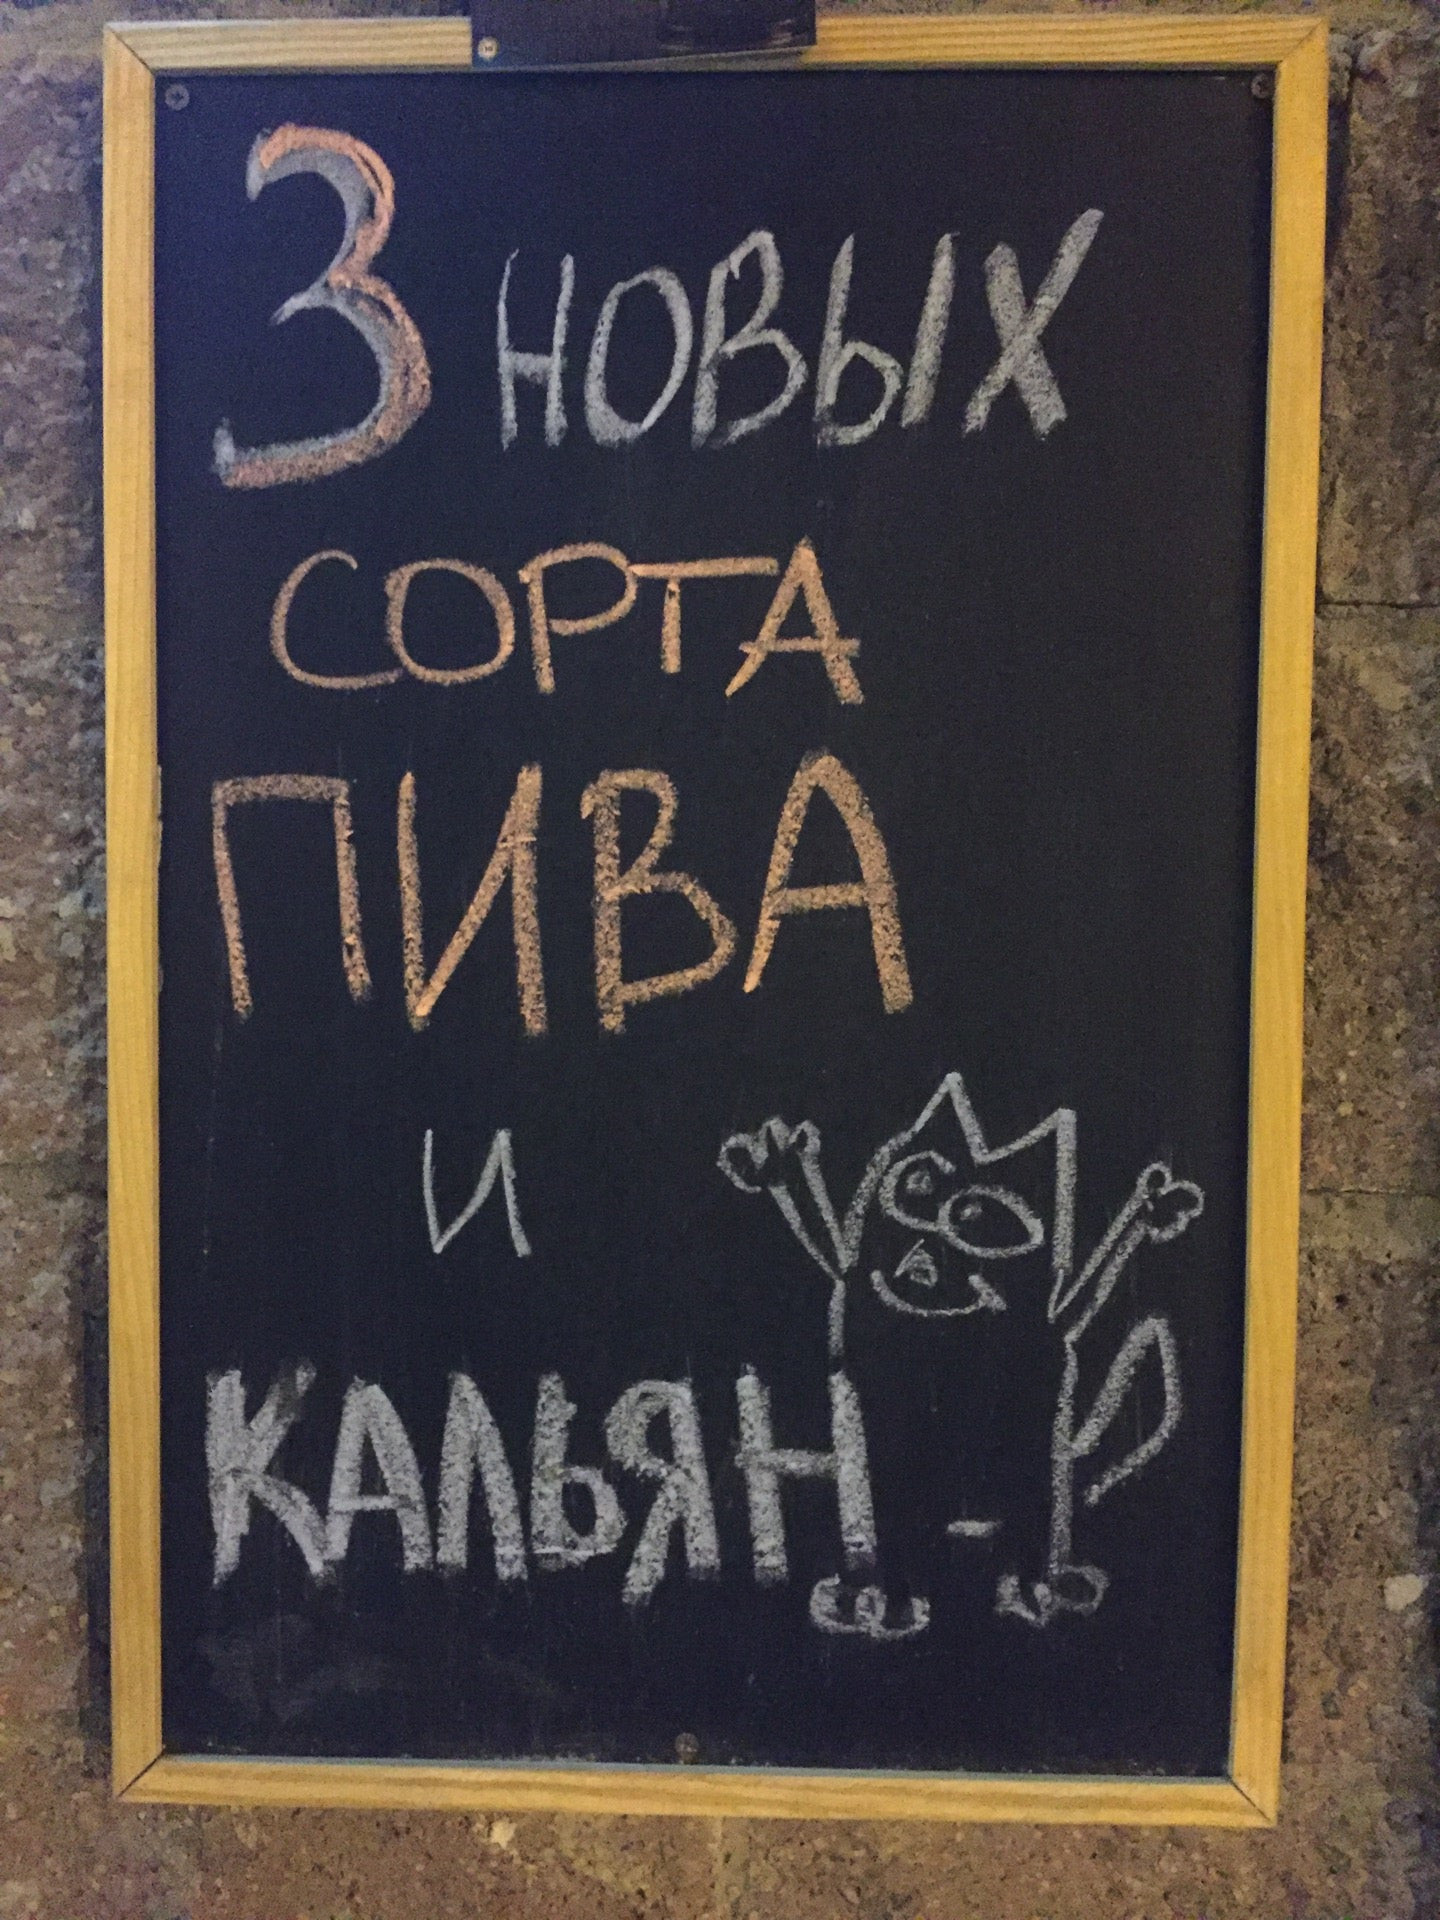 3 НОВЫХ
СОРТА
ПИВА
И
КАЛЬЯН